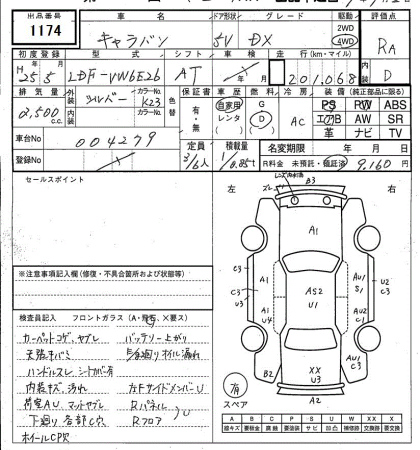 出品番号 車名 ドア形状 グレード 駆動 評価点
1174 キャラバン 5V DX 2WD 4WD RA
初度登録 型式 シフト 車検 走行(km・マイル) 内装
H25.5 LDF-VW6E26 AT 201,068 D
排気量 外装 カラーNo. 色替 保証書 車歴 燃料 冷房 装備(純正部品に限る)
2,500c.c. シルバー K23 有・無 自家用 レンタ G D AC PS PW ABS
エアB AW SR
革 ナビ TV
内装 カラーNo.
車台No 004279 定員 積載量 名変期限 年 月 日
登録No 3/6人 1/0.85t R料金 未預託・預託済 9,160円
セールスポイント
左 右
レンズ内
B3
A1
C3 C3
U3
A1 A1 U4
AS2 U1
AU1 S1
U2 C3
AU2 C1
B2
XX U3
AU2 C3
A2
有 スペア
※注意事項記入欄(修復・不具合箇所および状態等)
検査員記入 フロントガラス(A・飛石、X要ス)
カーペットコゲ、ヤブレ バッテリー上がり
天張キバミ オイル漏れ
ハンドルスレ シートカバー有
内装キズ、汚れ 左FサイドメンバーU
荷室AU、マットヤブレ Rパネル U
下廻り各部C穴 Rフロア
ホイールCP欠
A B C P S U W X XX
線キズ 要鈑金 腐食 要塗装 サビ 凹凸 補修跡 要交換 交換済